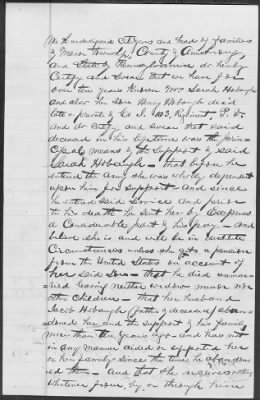 We the undersigned Citizens and heads of families
of Manor Township, County of Armstrong,
and State of Pennsylvania do hereby
Certify and swear that we have for
over ten years known Mrs Sarah Hobaugh
and also her son Henry Hobaugh dec'd
late a private of Co I 103 Regiment P. V.
and do certify and swear that said
deceased in his lifetime was the prin-
cipal means of the support of said
Sarah Hobaugh - that before he
entered the Army she was wholly dependent
upon him for support and since
he entered said service and prior
to his death he sent her by Express
a Considerable part of his pay - and
believe she is and will be in destitute
Circumstances unless she gets a pension
from the United States on account of
her said Son - that he died unmar-
ried leaving neither widow minor nor
other children - that her husband
Jacob Hobaugh (father of deceased) aban-
doned her and the support of his family
more than ten years ago and has not
in any manner aided or supported her
or her family since the time he abandon-
ed them - and that she receives nothing
whatever from, by, or through him